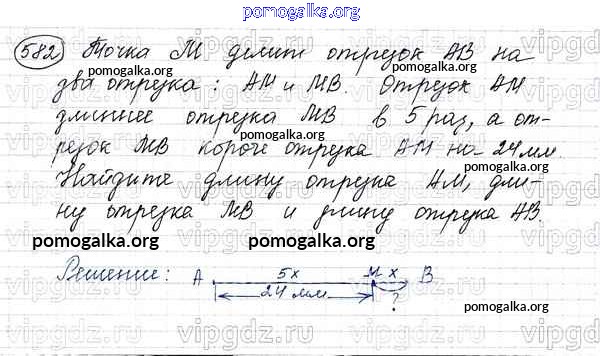 pomogalka.org
582 Точка М делит отрезок АВ на
pomogalka.org
два отрезка: АМ и МВ. Отрезок АМ
длиннее отрезка МВ в 5 раз, а от-
pomogalka.org
резок МВ короче отрезка АМ на 24 мм.
Найдите длину отрезка АМ, дли-
ну отрезка МВ и длину отрезка АВ.
pomogalka.org pomogalka.org
Решение: А 5х М х В
24 мм ?
pomogalka.org
pomogalka.org
vipgdz.ru